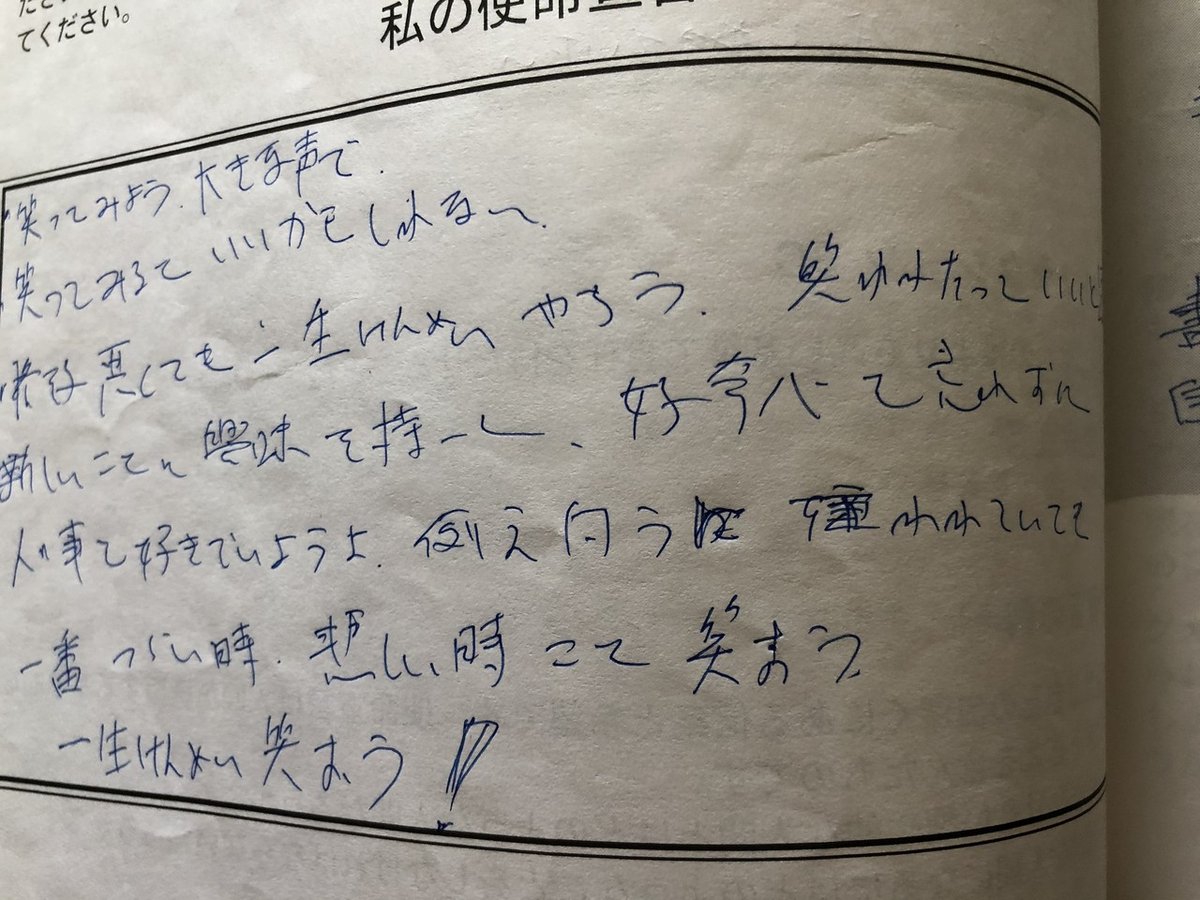 てください。
私の使命宣言
笑ってみよう、大きな声で、
笑ってみるといいかもしれない、
悪くても一生けんめいやろう、笑われたっていいと
新しいことに興味を持つし、好奇心を忘れずに
人の事を好きでいようよ、例え向うに嫌われていても
一番つらい時、悲しい時こそ笑おう
一生けんめい笑おう!